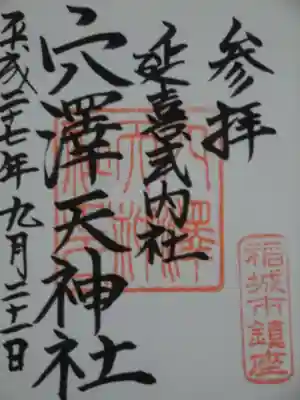 参拝
稲城市鎮座
延喜式内社
穴澤天神社
平成二十七年九月二十一日